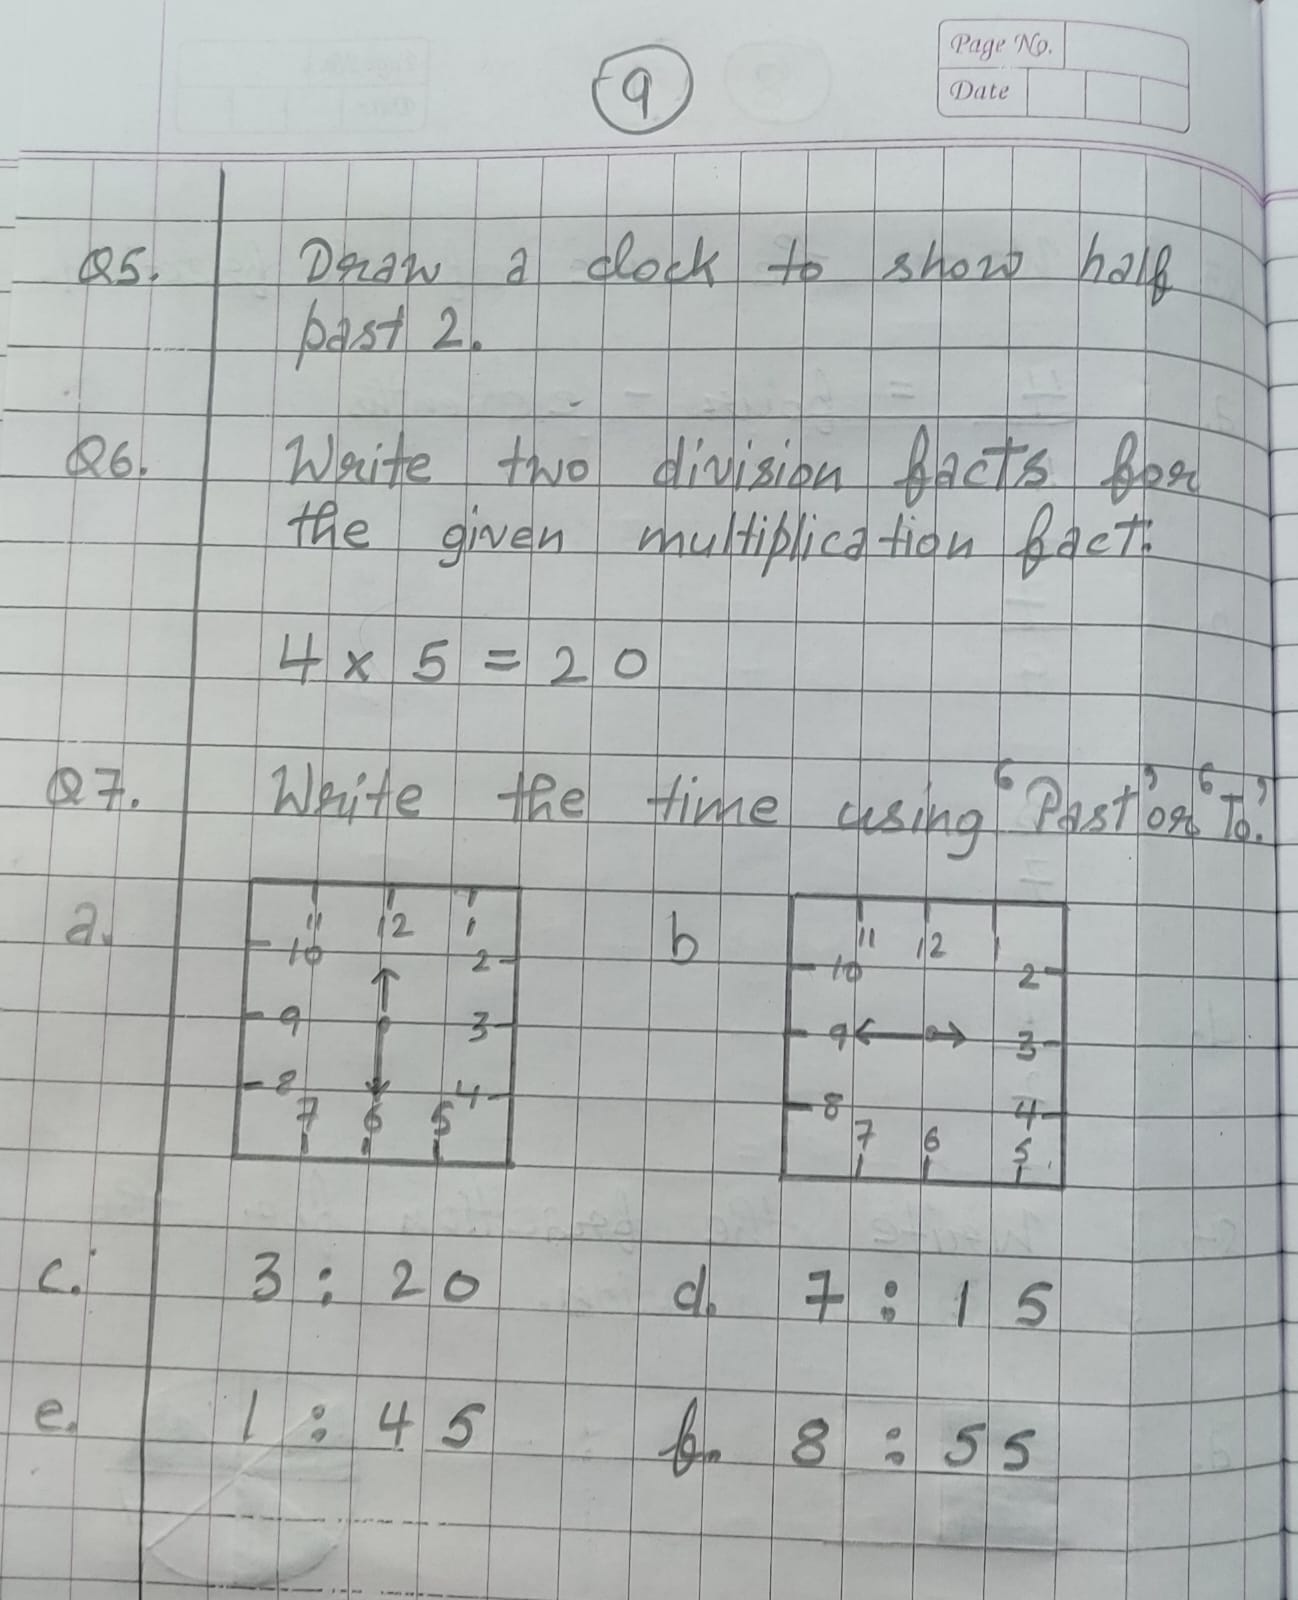 9
Page No.
Date
Q5. Draw a clock to show half
past 2.
Q6. Write two division facts for
the given multiplication fact:
4 x 5 = 20
Q7. Write the time using "Past" or "To".
a. 11 12 1
10 2
9 3
8 4
7 6 5
b 11 12
10 2
9 3
8 4
7 6 5
c. 3 : 20 d. 7 : 15
e. 1 : 45 f. 8 : 55